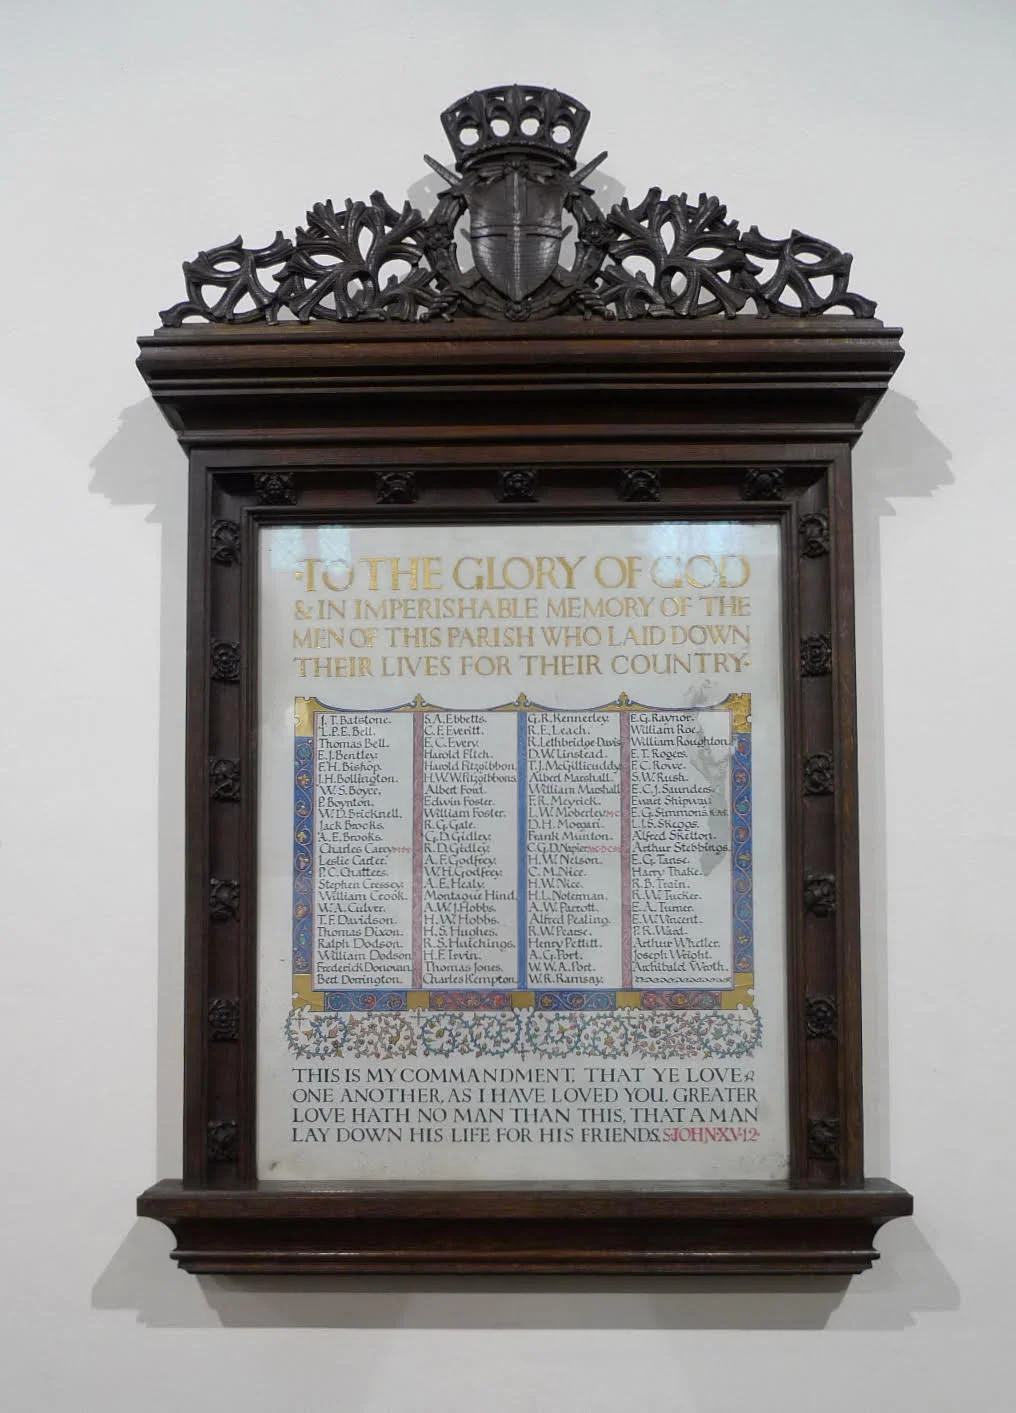 ·TO THE GLORY OF GOD
& IN IMPERISHABLE MEMORY OF THE
MEN OF THIS PARISH WHO LAID DOWN
THEIR LIVES FOR THEIR COUNTRY·
J. T. Batstone.
L.P.E. Bell.
Thomas Bell.
E. J. Bentley.
F.H. Bishop.
J.H. Bollington.
W. S. Boyce.
P. Boynton.
W. D. Bricknell.
Jack Brooks.
A. E. Brooks.
Charles Carey
Leslie Carter.
P. C. Chatters.
Stephen Cressey.
William Crook.
W. A. Culver.
T. F. Davidson.
Thomas Dixon.
Ralph Dodson.
William Dodson
Frederick Donovan.
Bert Dorrington.
S.A. Ebbetts.
C. F. Everitt.
E. C. Every.
Harold Fitch.
Harold Fitzgibbon.
H.W.W. Fitzgibbons.
Albert Font.
Edwin Foster.
William Foster.
R. G. Gale.
G. D. Gidley.
R. D. Gidley.
A. F. Godfrey.
W. H. Godfrey.
A. E. Healy.
Montague Hind.
A. W. J. Hobbs.
H. W. Hobbs.
H. S. Hughes.
R. S. Hutchings.
H. F. Irvin.
Thomas Jones.
Charles Kempton.
G. R. Kennerley.
R. E. Leach.
R. Lethbridge Davis
D. W. Linstead.
T. J. McGillicuddy
Albert Marshall.
William Marshall
F. R. Meyrick.
L. W. Moberley M·C
D. H. Morgan.
Frank Munton.
C. G. D. Napier M·C·D·C·M
H. W. Nelson.
C. M. Nice.
H. W. Nice.
H. L. Noteman.
A. W. Parrott.
Alfred Peating.
R. W. Pearse.
Henry Pettitt.
A. G. Port.
W. W. A. Port.
W. R. Ramsay.
E. G. Raynor.
William Roe.
William Roughton.
E. T. Rogers.
F. C. Rowe.
S. W. Rush.
E. C. J. Saunders.
Ewart Shipway.
E. G. Simmons.
L. J. S. Skeggs.
Alfred Skelton.
Arthur Stebbings.
E. G. Tanse.
Harry Thake.
R. B. Train.
R. W. Tucker.
E. A. Turner.
E. W. Vincent.
P. R. Ward.
Arthur Wheller.
Joseph Wright.
Archibald Wroth.
THIS IS MY COMMANDMENT, THAT YE LOVE
ONE ANOTHER, AS I HAVE LOVED YOU. GREATER
LOVE HATH NO MAN THAN THIS, THAT A MAN
LAY DOWN HIS LIFE FOR HIS FRIENDS. S·JOHN·XV·12·